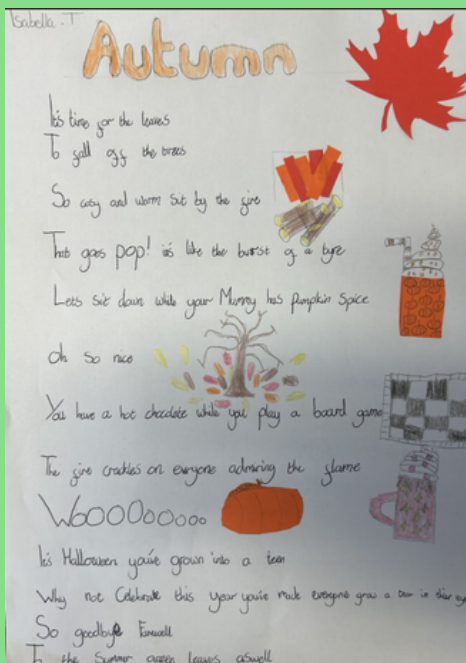 Isabella .T
Autumn
It's time for the leaves
To fall off the trees
So cosy and warm sit by the fire
That goes pop! it's like the burst of a tyre
Lets sit down while your Mummy has Pumpkin Spice
Oh so nice
You have a hot chocolate while you play a board game
The fire crackles on everyone admiring the flame
WoOOOoooooo
It's Halloween you've grown into a teen
Why not Celebrate this year you've made everyone grow a tear in their
So goodbye Farewell
To the Summer green leaves aswell